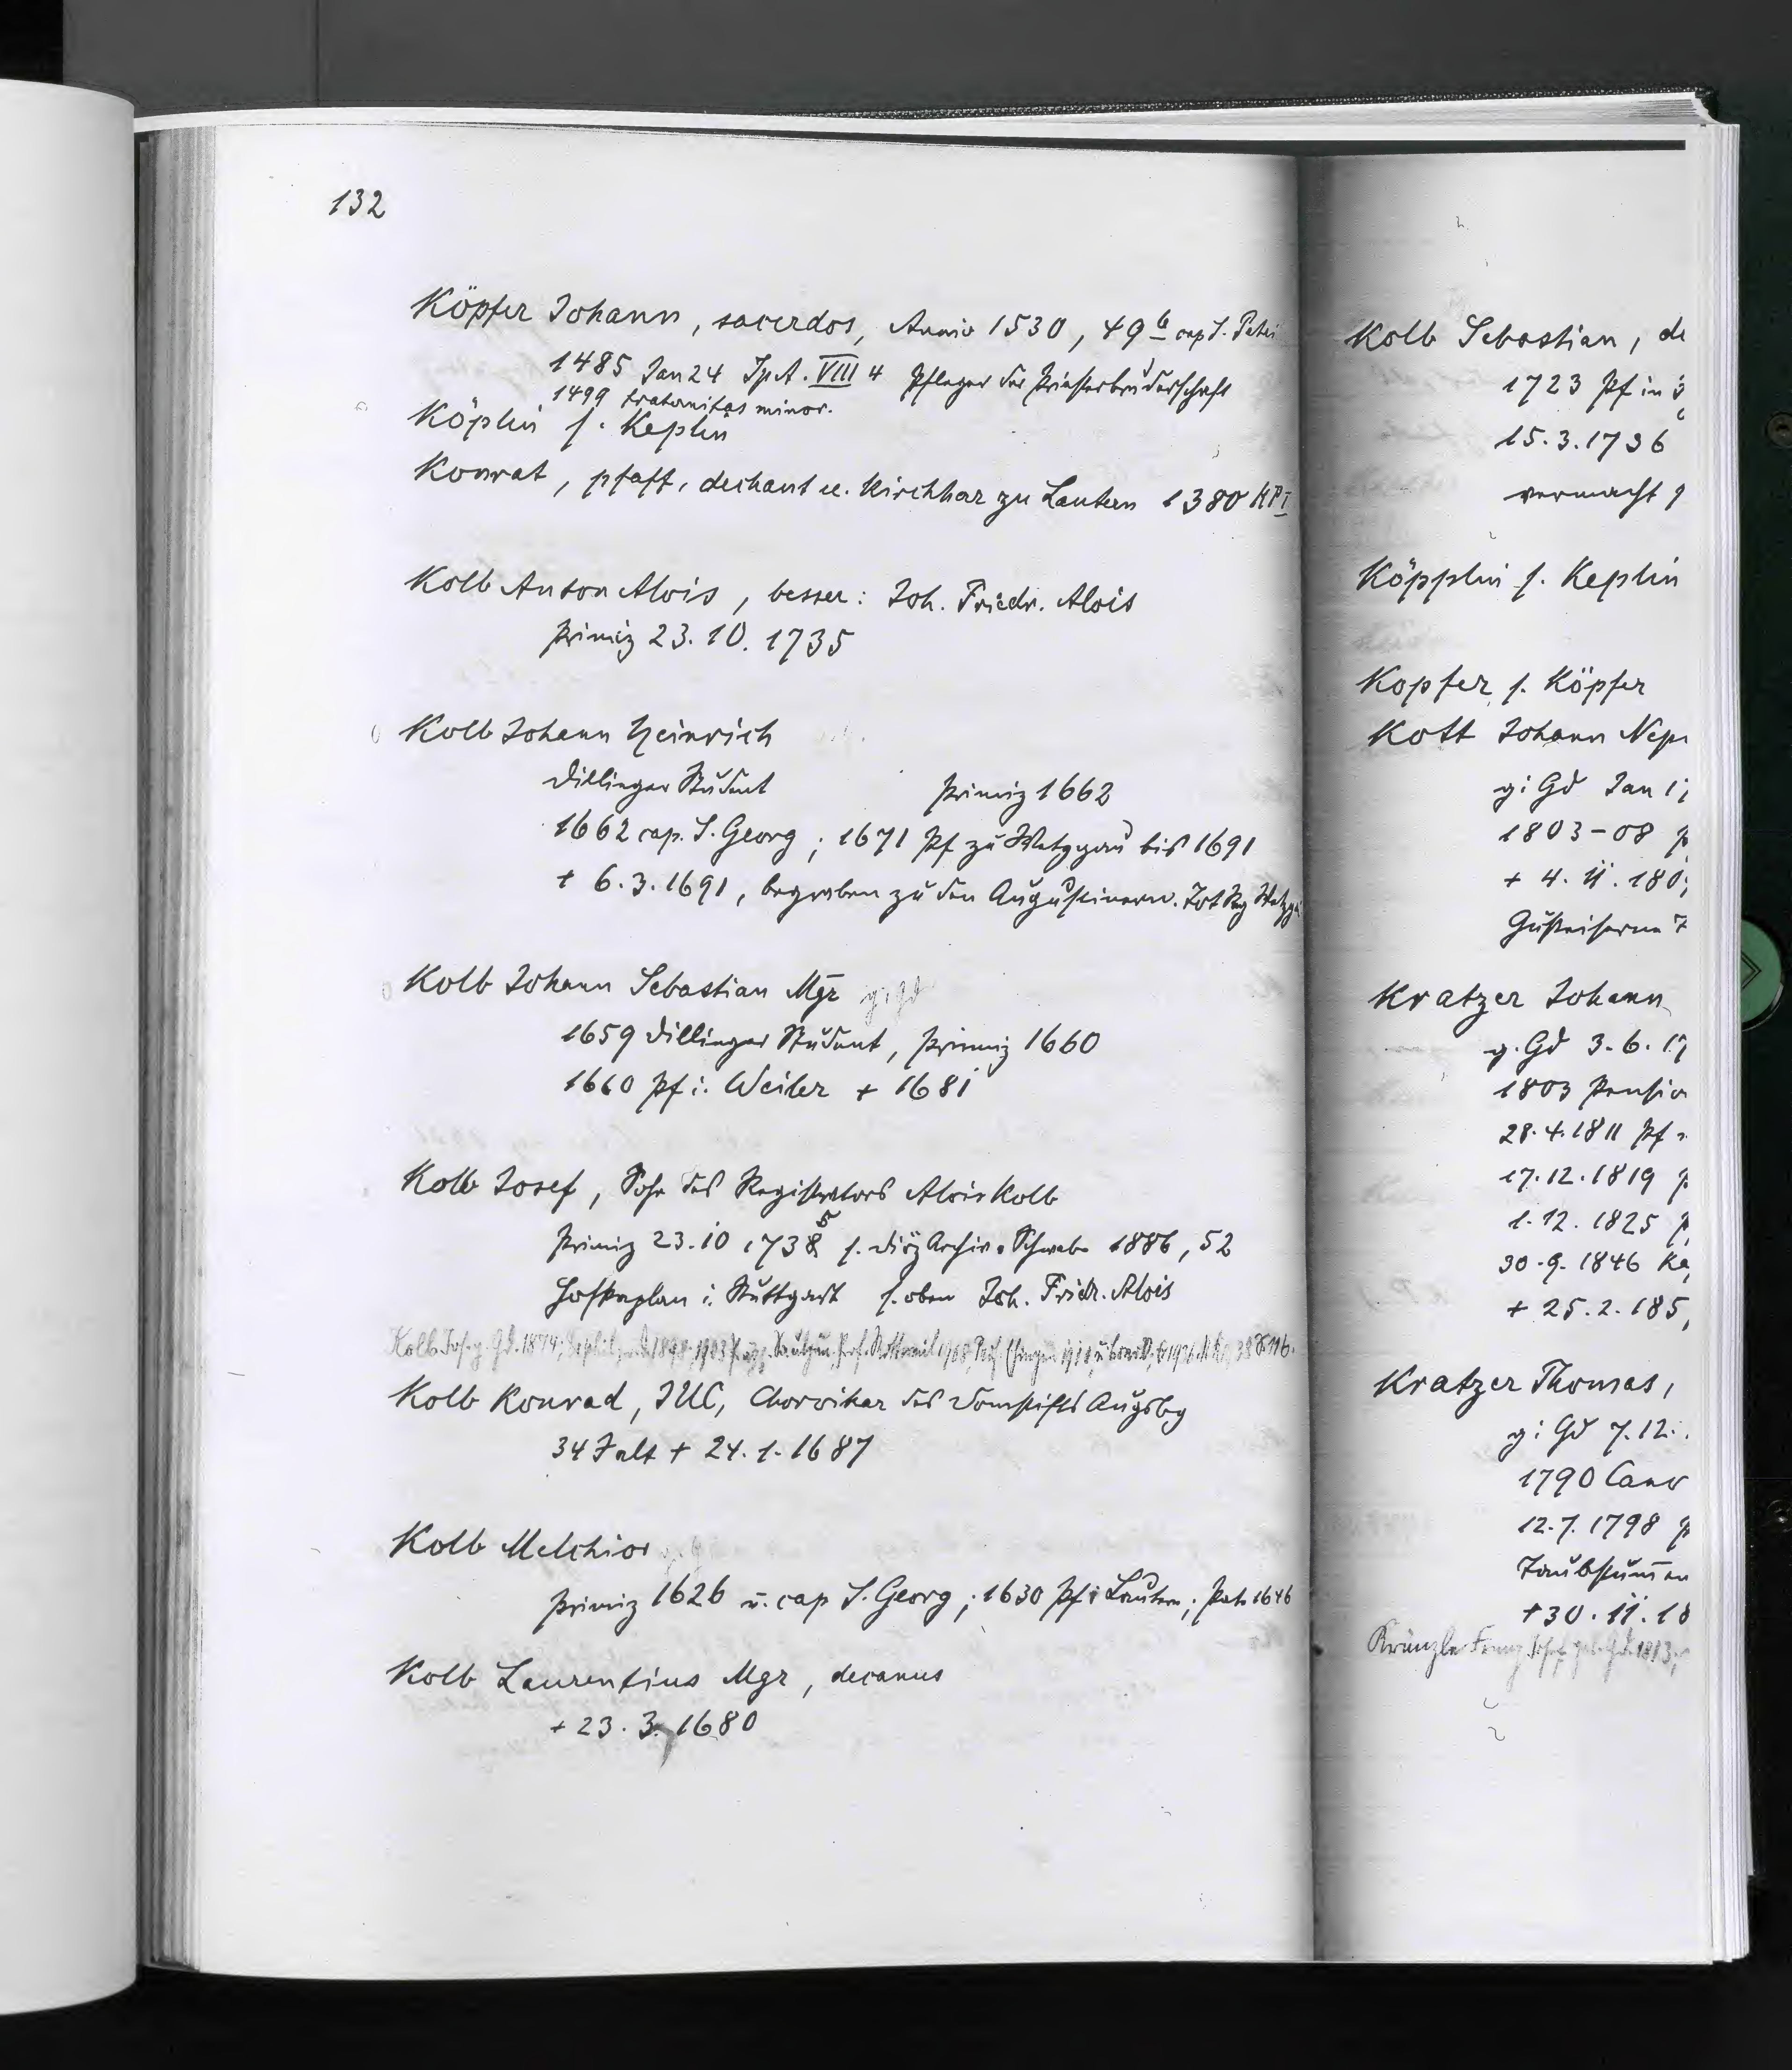 132
Köpfer Johann, sacerdos, Anniv 1530, 49b cap S. Petri
1485 Jan 24 SpA. VIII 4 Pfleger der Priesterbruderschaft
1499 fraternitas minor.
Köplin s. Keplin
Konrat, pfaff, dechant u. Kirchhar zu Lautern 1380 KPI
Kolb Anton Alois, besser: Joh. Friedr. Alois
Primiz 23. 10. 1735
Kolb Johann Heinrich
Dillinger Student Primiz 1662
1662 cap. S. Georg; 1671 Pf zu Wetzgau bis 1691
+ 6. 3. 1691, begraben zu den Augustinern. Tot Reg Wetzga
Kolb Johann Sebastian Mgr g i Gd
1659 Dillinger Student, Primiz 1660
1660 Pf i. Weiler + 1681
Kolb Josef, Sohn des Registrators Alois Kolb
Primiz 23. 10 1738 5 s. Diöz Archiv. Schwabe 1886, 52
Hofkaplan i. Stuttgart s. oben Joh. Fridr. Alois
Kolb Jos. g. Gd. 1874; 1898, 1903 Rottweil 1908, Ehingen 1918, 1926. 38 S 116.
Kolb Konrad, JUC, Chorvikar des Domstifts Augsbg
34 J alt + 24. 1. 1687
Kolb Melchior
Primiz 1626 u. cap S. Georg; 1630 Pf i Lautern; 1646
Kolb Laurentius Mgr, decanus
+ 23. 3. 1680
Kolb Sebastian, de
1723 Pf in
15. 3. 1736
vermacht
Köpplin s. Keplin
Kopfer s. Köpfer
Kott Johann Nep
g i Gd Jan 17
1803-08
+ 4. 11. 180
Gusseiserne
Kratzer Johann
g. Gd 3. 6. 17
1803 Pensio
28. 4. 1811 Pf
17. 12. 1819
1. 12. 1825
30. 9. 1846 Ka
+ 25. 2. 185
Kratzer Thomas,
g i Gd 7. 12.
1790 Cano
12. 7. 1798
Taubstummen
+ 30. 11. 18
Kränzle Franz Josef geb. Gd. 1813;